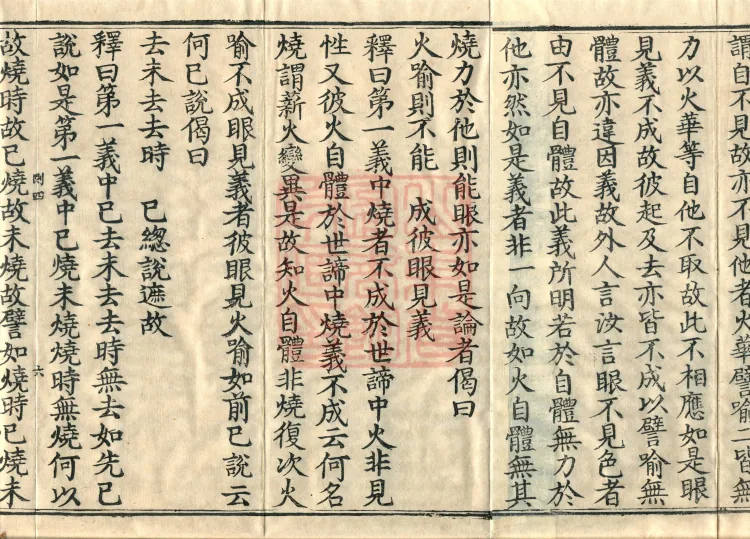 謂自不見故亦不見他者火華譬喻二皆無
力以火華等自他不取故此不相應如是眼
見義不成故彼起及去亦皆不成以譬喻無
體故亦違因義故外人言汝言眼不見色者
由不見自體故此義所明若於自體無力於
他亦然如是義者非一向故如火自體無其
燒力於他則能眼亦如是論者偈曰
火喻則不能　成彼眼見義
釋曰第一義中燒者不成於世諦中火非見
性又彼火自體於世諦中燒義不成云何名
燒謂薪火變異是故知火自體非燒復次火
喻不成眼見義者彼眼見火喻如前已說云
何已說偈曰
去未去去時　已總說遮故
釋曰第一義中已去未去去時無去如先已
說如是第一義中已燒未燒燒時無燒何以
故燒時故已燒故未燒故譬如燒時已燒未
六